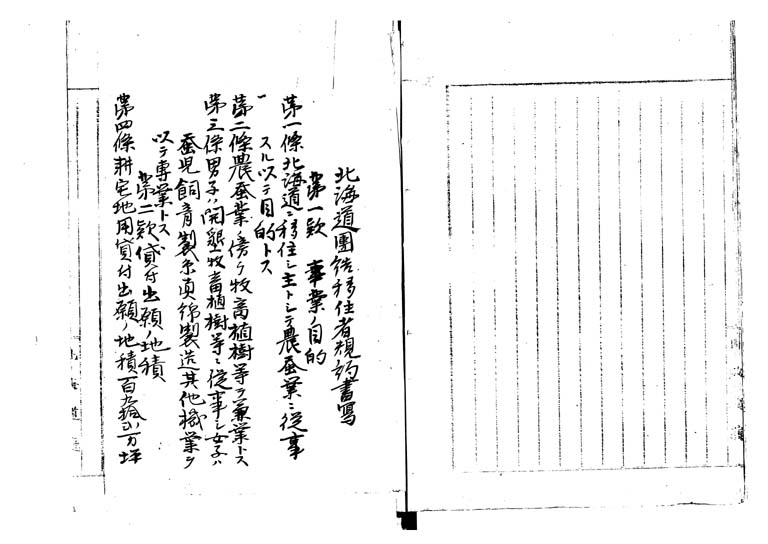 北海道團結移住者規約書寫
第一款 事業ノ目的
第一條北海道ニ移住シ主トシテ農蚕業ニ従事
スルヲ以テ目的トス
第二條農蚕業ノ傍ラ牧畜植樹等ヲ兼業トス
第三條男子ハ開墾牧畜植樹等ニ従事シ女子ハ
蚕児飼育製糸真綿製造其他職業ヲ
以テ専業トス
第二款貸付出願ノ地積
第四條耕宅地用貸付出願ノ地積百九拾万坪